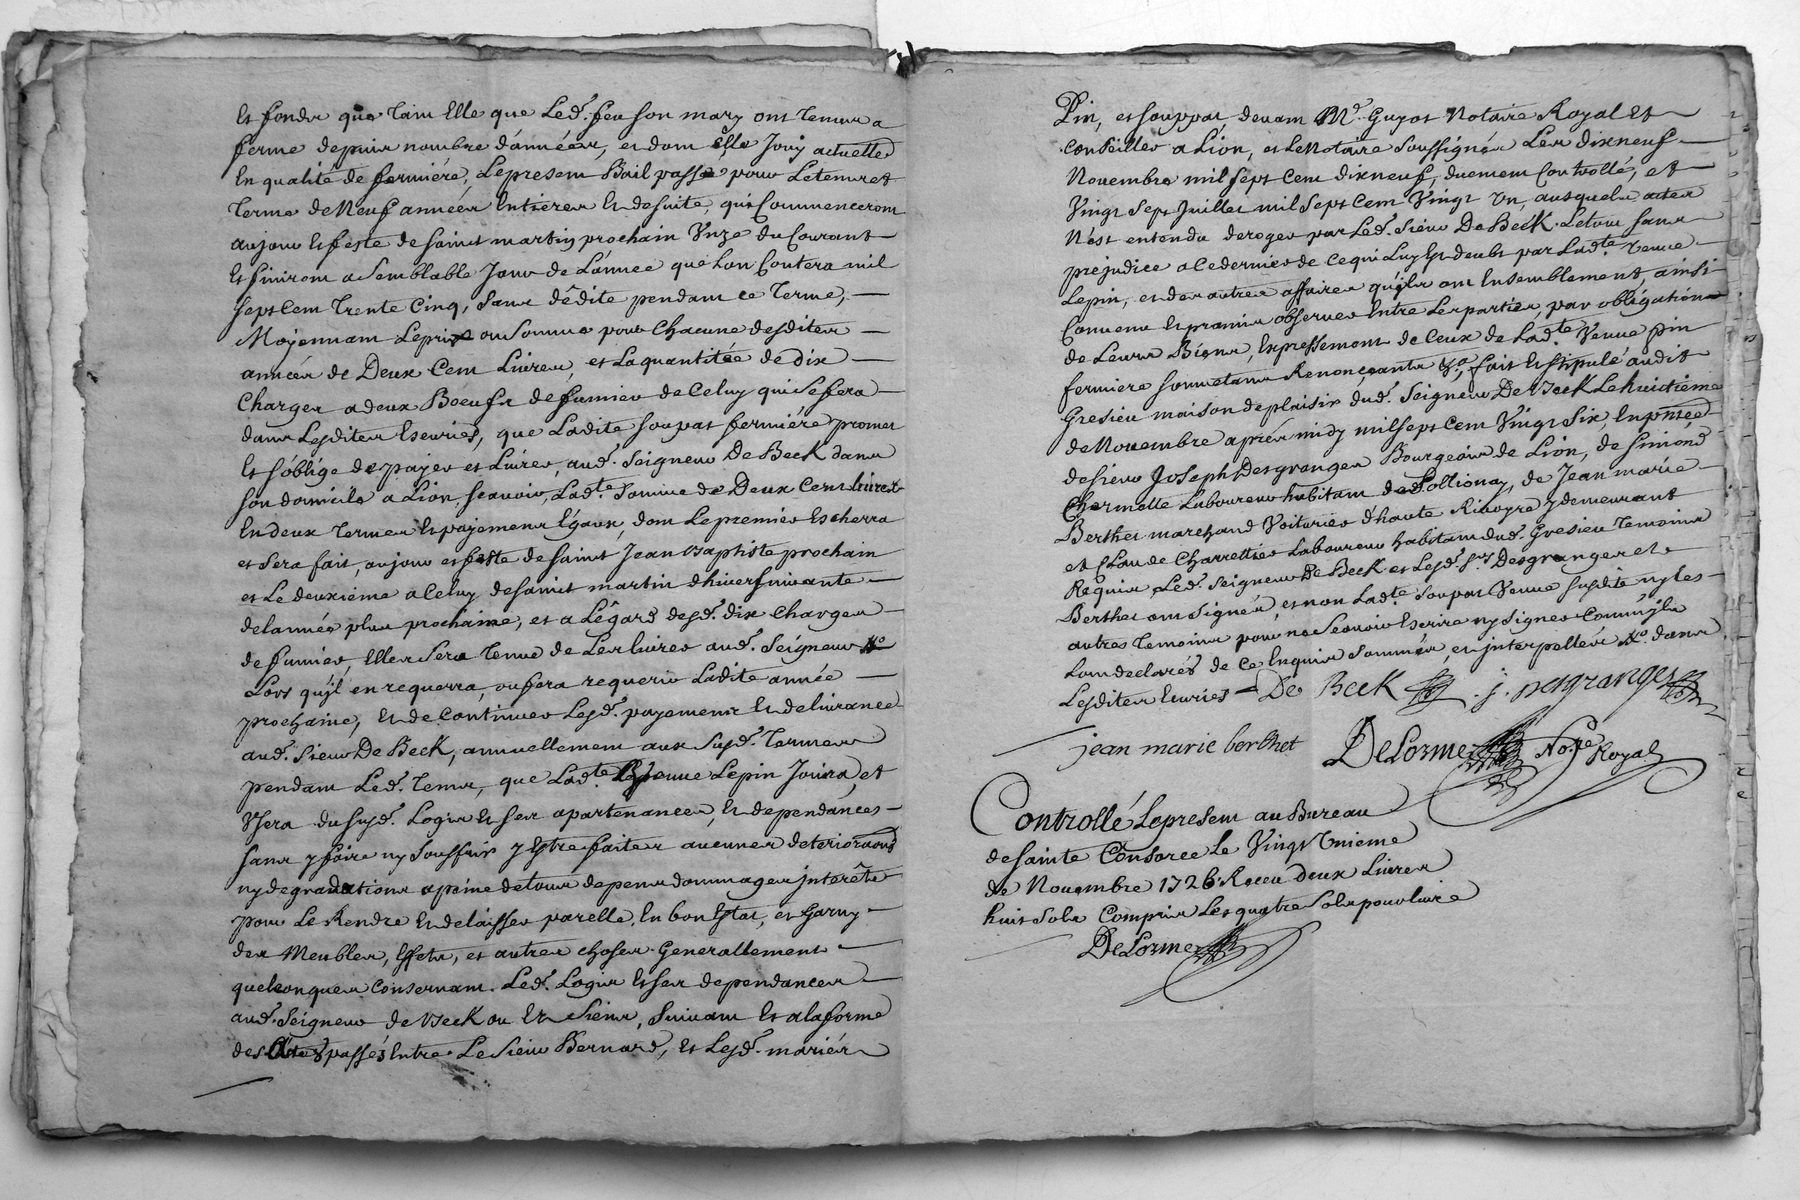 et fonds que tant elle que led. feu son mary ont tenus a
ferme depuis nombre d'années, et dont elle jouy actuelle
en qualité de fermiere, le present Bail passé pour le tems et
terme de Neuf années entieres et de suite, qui Commenceront
au jour et feste de saint martin prochain Unze du Courant
et finiront a semblable Jour de L'année que Lon Contera mil
sept Cent trente Cinq, sans dédite pendant ce terme,
Moyennant Le prix ou somme pour Chacune desdites
années de Deux Cent Livres, et la quantitée de dix
Charges a deux Boeufs de fumier de Celuy qui se fera
dans Lesdites Escuries, que Ladite soupas fermiere promet
et s'oblige de payer et Livrer, aud. Seigneur De Beck dans
son domicile a Lion, scavoir, Lad.te somme de Deux Cent Livres
En deux termes et payemens Egaux, dont Le premier Escherra
et sera fait, au jour et feste de saint Jean Baptiste prochain
et Le deuxième a Celuy de saint martin d'hiver suivante
de l'année plus prochaine, et a L'égard desd. dix Charges
de fumier, Elle sera tenue de Les livrer aud. Seigneur
Lors qu'jl en requerra, ou fera requerir Ladite année
prochaine, et de Continuer Lesd. payemens et delivrance
aud. Sieur De Beck, annuellement aux susd. termes
pendant Led. tems, que Lad.te Veuve Lepin Jouira, et
Usera du susd. Logis et ses apartenances, et dependances
sans y faire ny souffrir y Estre faites aucunes deterioraons
ny degradations a peine de tous depens dommages jnterêts
pour Le Rendre et delaisser par elle, En bon Estat, et Garny
des Meubles, Effets, et autres choses Generallement
quelconques Consernant Led. Logis et ses dependances
aud. Seigneur de Beck ou Es siens, suivant et a la forme
des Actes passés Entre Le sieur Bernard, et Lesd. mariés
Pin, et souppat devant M.e Guyot Notaire Royal et
Conseiller a Lion, et Le Notaire soussignés Les dix neuf
Novembre mil sept Cent dixneuf, duement Controllé, et
Vingt sept Juillet mil sept Cent Vingt Un, ausquels actes
N'est entendu deroger par Led. Sieur De Beck Le tout sans
prejudice a Ce dernier de Ce qui Luy Est deubt par Lad.te Veuve
Lepin, et des autres affaires qu'jls ont Ensemblement ainsi
Convenu et promis observer Entre Les parties, par obligation
de Leurs Biens, Expressement de Ceux de Lad.te Veuve pin
fermiere soumetans Renonçants &a, fait et stipulé audit
Gresieu maison de plaisir dud. Seigneur De Beck Le huictiéme
de Novembre aprés midy mil sept Cent Vingt Six, En p̃nce
de sieur Joseph Desgranges Bourgeois de Lion, de Simond
Chermette Laboureur habitant de Pollionay, de Jean marie
Berthet marchand Voiturier d'haute Rivoyre y demeurant
et Claude Charrettier Laboureur habitant dud. Gresieu temoins
Requis Led. Seigneur De Beck et Lesd. S.rs Desgranges et
Berthet ont signés, et non Lad.te soupat Veuve susdite ny les
autres temoins pour ne scavoir Escrire ny signer Comm'jls
L'ont declarés de Ce Enquis sommés, et jnterpellés X.o dans
Lesdites Ecuries = De Beck . j. Desgranges
jean marie berthet DeLorme No.re Royal
Controllé Le present au Bureau
de sainte Consorce Le Vingt Unieme
de Novembre 1726 Receu deux Livres
huit sols Compris Les quatre sols pour livre
DeLorme